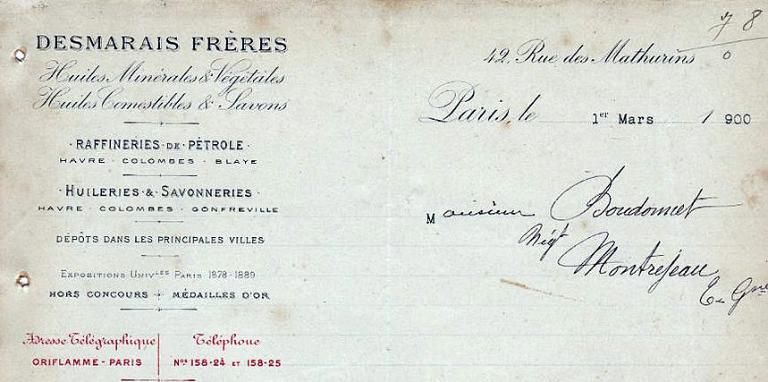 DESMARAIS FRÈRES
Huiles Minérales & Végétales
Huiles Comestibles & Savons
· RAFFINERIES DE PÉTROLE ·
HAVRE · COLOMBES · BLAYE
HUILERIES & SAVONNERIES ·
HAVRE · COLOMBES · GONFREVILLE
DÉPÔTS DANS LES PRINCIPALES VILLES
EXPOSITIONS UNIVLES PARIS 1878-1889
HORS CONCOURS + MÉDAILLES D'OR
Adresse Télégraphique
ORIFLAMME - PARIS
Téléphone
Nos 158-24 ET 158-25
78
0
42, Rue des Mathurins
Paris, le 1er Mars 1900
Monsieur Boudonnet
Négt
Montrejeau